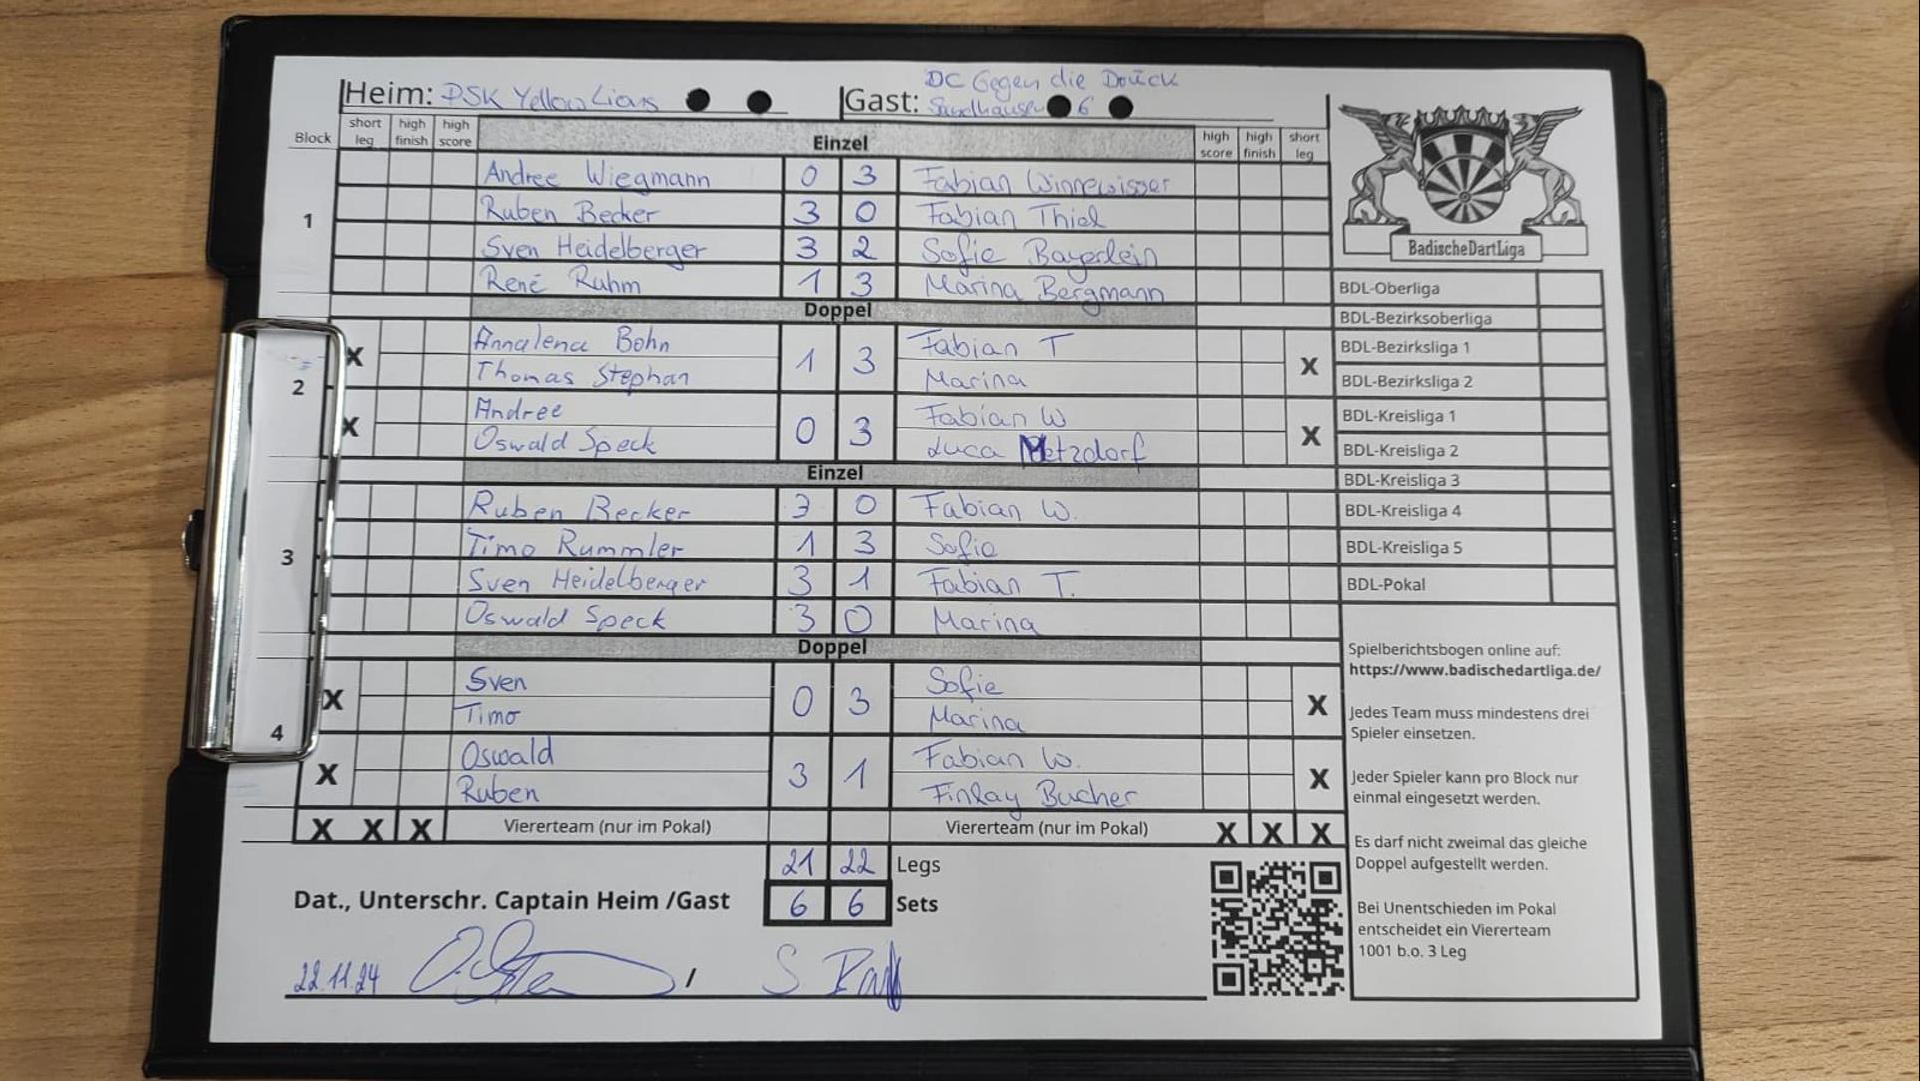 Heim: PSK Yellow Lions
Gast: DC Gegen die Douck
Sandhausen 6
Block short leg high finish high score Einzel high score high finish short leg
1
Andree Wiegmann 0 3 Fabian Winnewisser
Ruben Becker 3 0 Fabian Thiel
Sven Heidelberger 3 2 Sofie Bayerlein
René Ruhm 1 3 Marina Bergmann
Doppel
2
X Annalena Bohn 1 3 Fabian T X
Thomas Stephan Marina
X Andree 0 3 Fabian W X
Oswald Speck Luca Metzdorf
Einzel
3
Ruben Becker 3 0 Fabian W.
Timo Rummler 1 3 Sofie
Sven Heidelberger 3 1 Fabian T.
Oswald Speck 3 0 Marina
Doppel
4
X Sven 0 3 Sofie X
Timo Marina
X Oswald 3 1 Fabian W. X
Ruben Finlay Bucher
X X X Viererteam (nur im Pokal) Viererteam (nur im Pokal) X X X
21 22 Legs
6 6 Sets
Dat., Unterschr. Captain Heim /Gast
22.11.24 /
BadischeDartLiga
BDL-Oberliga
BDL-Bezirksoberliga
BDL-Bezirksliga 1
BDL-Bezirksliga 2
BDL-Kreisliga 1
BDL-Kreisliga 2
BDL-Kreisliga 3
BDL-Kreisliga 4
BDL-Kreisliga 5
BDL-Pokal
Spielberichtsbogen online auf:
https://www.badischedartliga.de/
Jedes Team muss mindestens drei
Spieler einsetzen.
Jeder Spieler kann pro Block nur
einmal eingesetzt werden.
Es darf nicht zweimal das gleiche
Doppel aufgestellt werden.
Bei Unentschieden im Pokal
entscheidet ein Viererteam
1001 b.o. 3 Leg